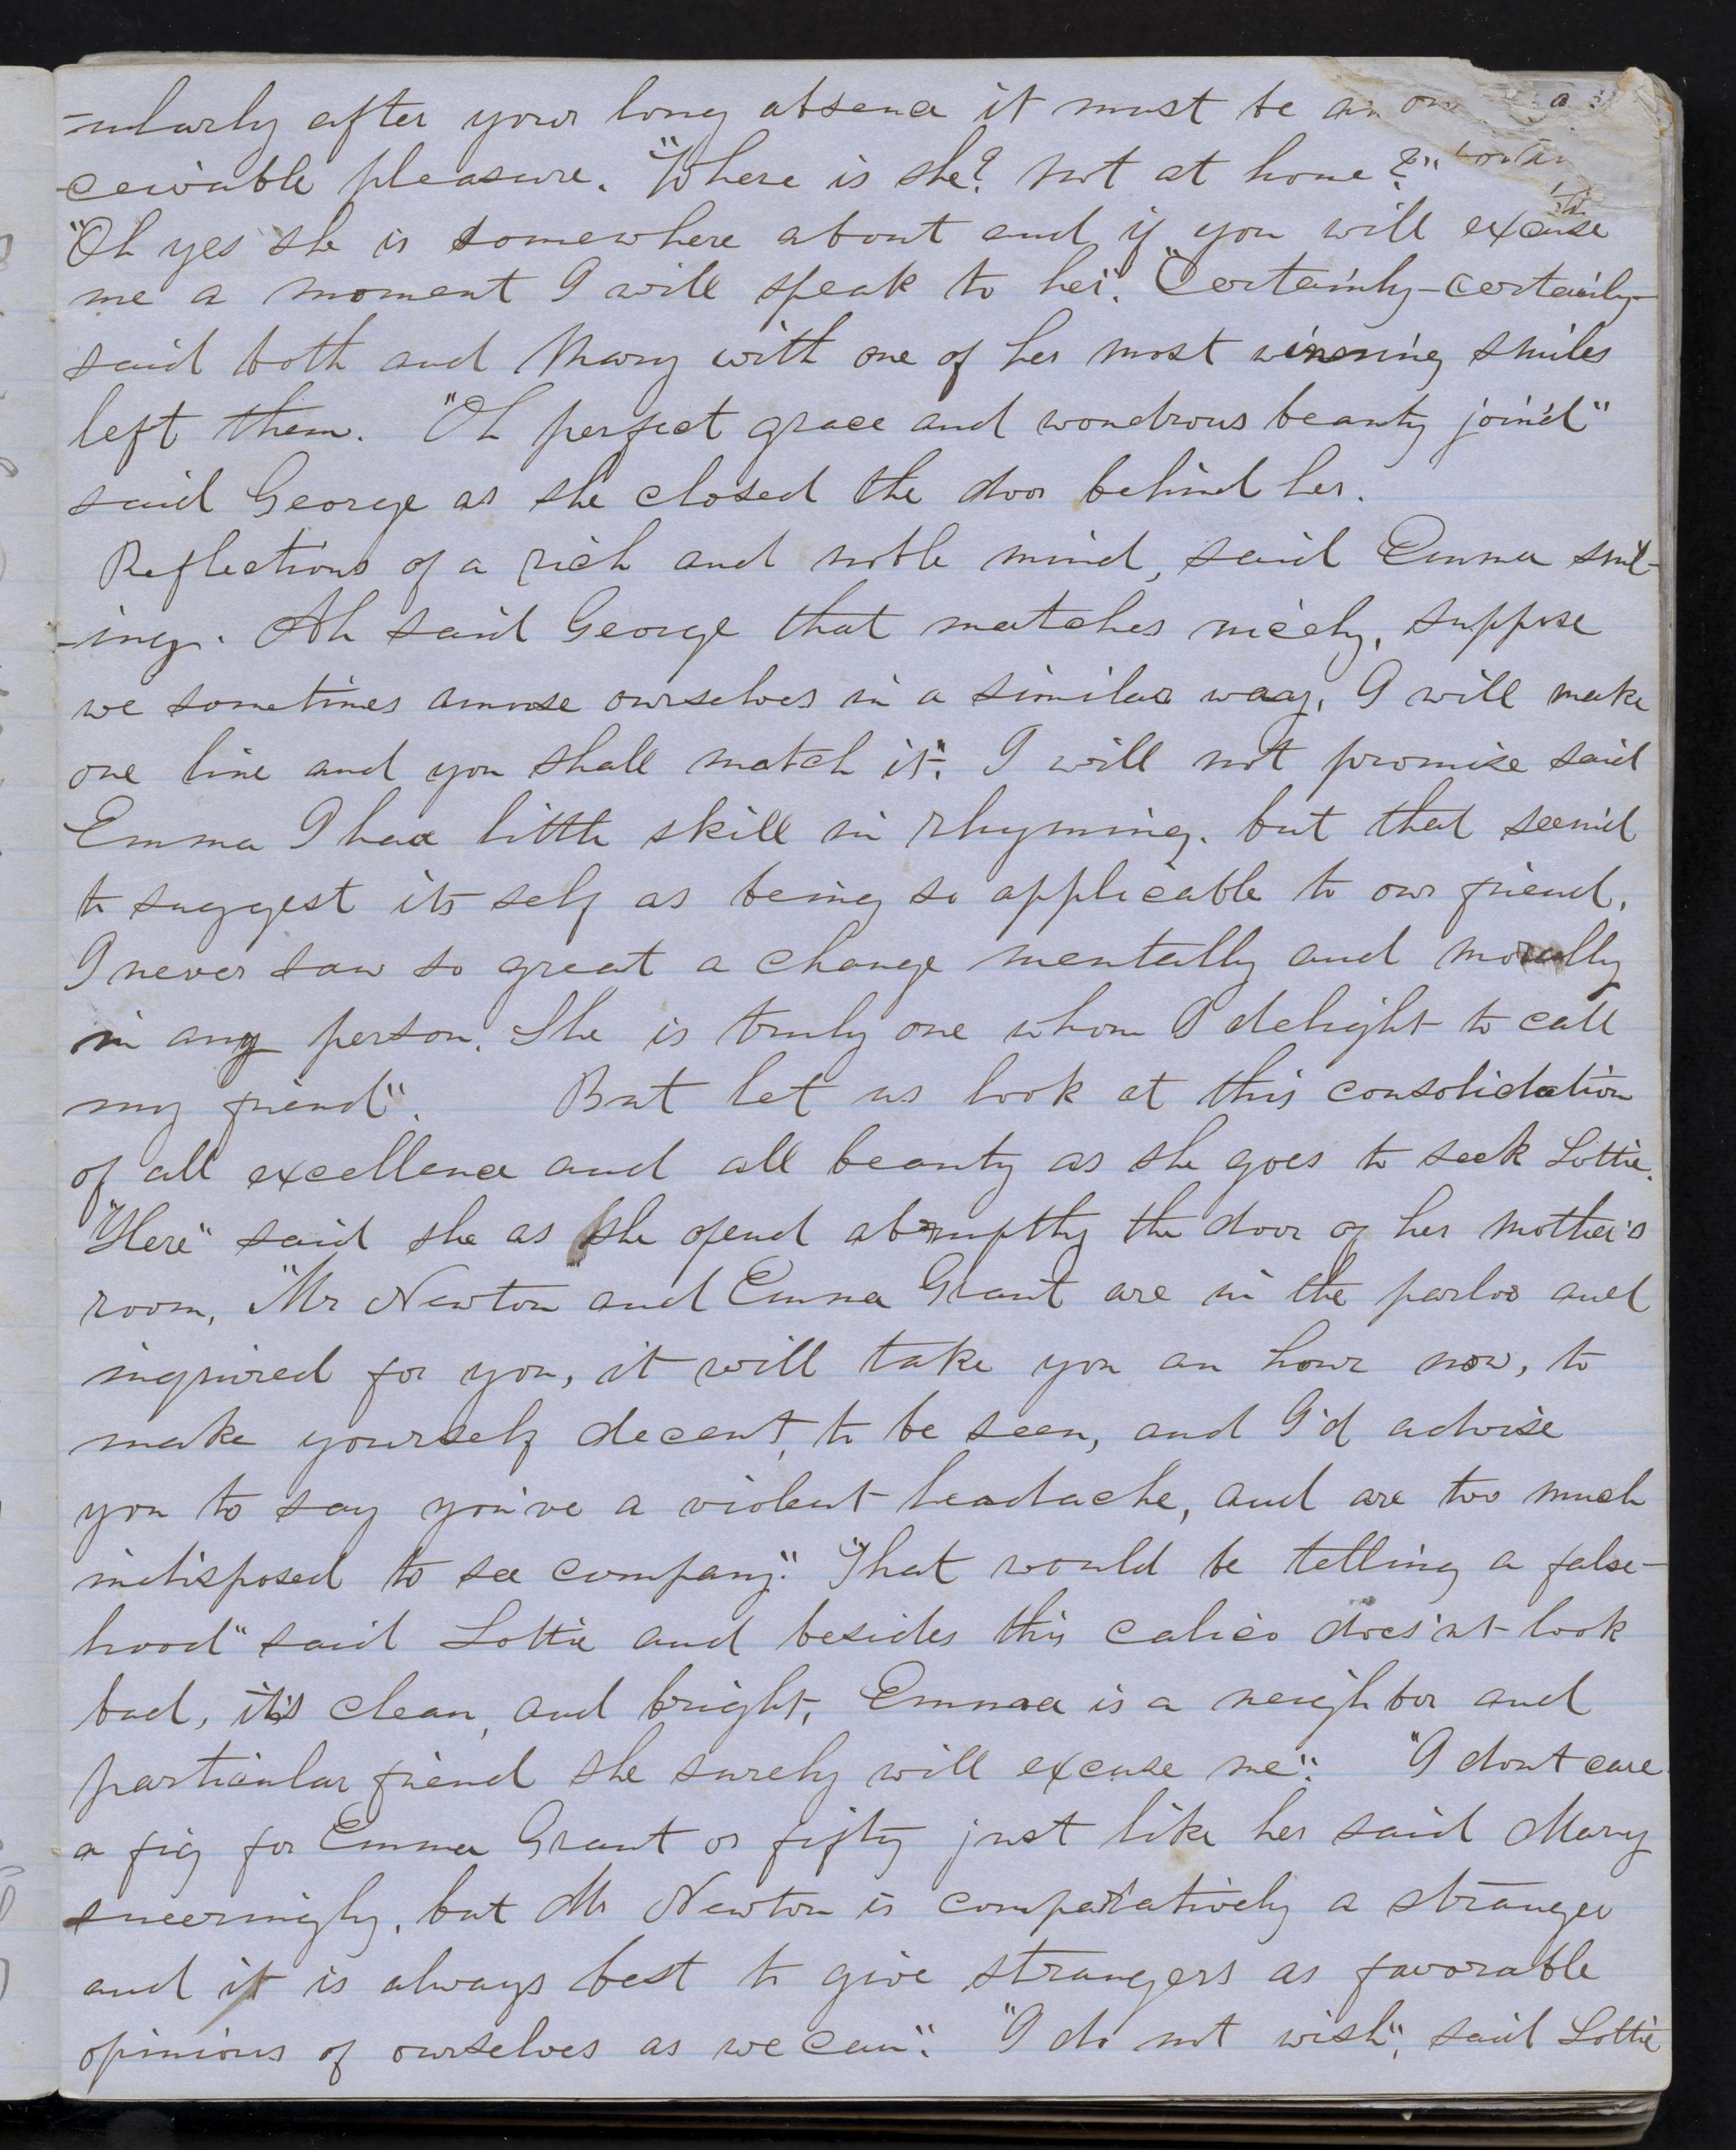 -ularly after your long absence it must be an
-ceivable pleasure. "Where is she? not at home?"
"Oh yes she is somewhere about and if you will excuse
me a moment I will speak to her". "Certainly - certainly -
said both and Mary with one of her most winning smiles
left them. "Oh perfect grace and wondrous beauty join'd"
said George as she closed the door behind her.
Reflections of a rich and noble mind, said Emma smil-
-ing. Ah said George that matches nicely, suppose
we sometimes amuse ourselves in a similar way, I will make
one line and you shall match it". I will not promise said
Emma I have little skill in rhyming. but that seem'd
to suggest its self as being so applicable to our friend,
I never saw so great a change mentally and morally
in any person. She is truly one whom I delight to call
my friend". But let us look at this consolidation
of all excellence and all beauty as she goes to seek Lottie.
"Here" said she as she opend abruptly the door of her mother's
room, "Mr Newton and Emma Grant are in the parlor and
inquired for you, it will take you an hour now, to
make yourself decent, to be seen, and I'd advise
you to say you've a violent headache, and are too much
indisposed to see company". "That would be telling a false-
hood" said Lottie and besides this calico does'nt look
bad, it's clean, and bright, Emma is a neighbor and
particular friend she surely will excuse me". "I dont care
a fig for Emma Grant or fifty just like her said Mary
sneeringly, but Mr Newton is comparatively a stranger
and it is always best to give strangers as favorable
opinions of ourselves as we can". "I do not wish", said Lottie